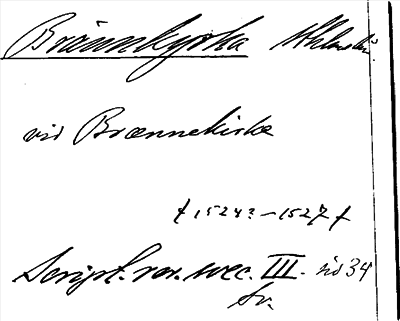 Brännkyrka
vid Brœnnekirke
† 1524?–1527 †
Script. rer. svec. III. sid 34
Sv.